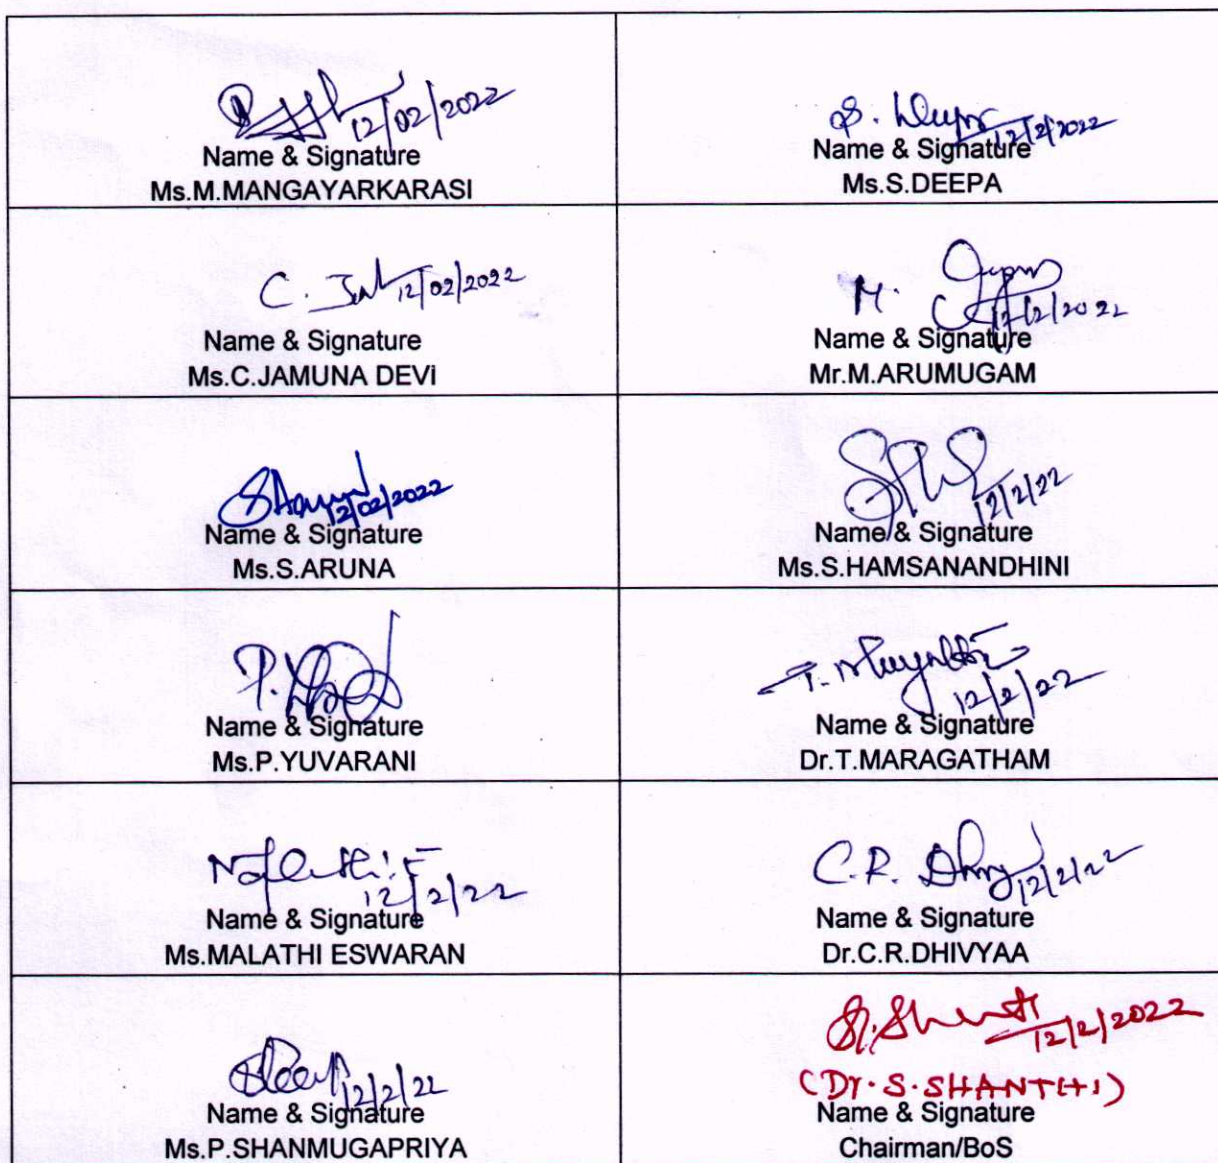 12/02/2022
Name & Signature
Ms.M.MANGAYARKARASI
S. Deepa 12/2/2022
Name & Signature
Ms.S.DEEPA
C. 12/02/2022
Name & Signature
Ms.C.JAMUNA DEVi
M. 12/2/2022
Name & Signature
Mr.M.ARUMUGAM
12/02/2022
Name & Signature
Ms.S.ARUNA
12/2/22
Name & Signature
Ms.S.HAMSANANDHINI
P.
Name & Signature
Ms.P.YUVARANI
T. 12/2/22
Name & Signature
Dr.T.MARAGATHAM
12/2/22
Name & Signature
Ms.MALATHI ESWARAN
C.R. 12/2/22
Name & Signature
Dr.C.R.DHIVYAA
12/2/22
Name & Signature
Ms.P.SHANMUGAPRIYA
12/2/2022
(Dr. S. SHANTHI)
Name & Signature
Chairman/BoS